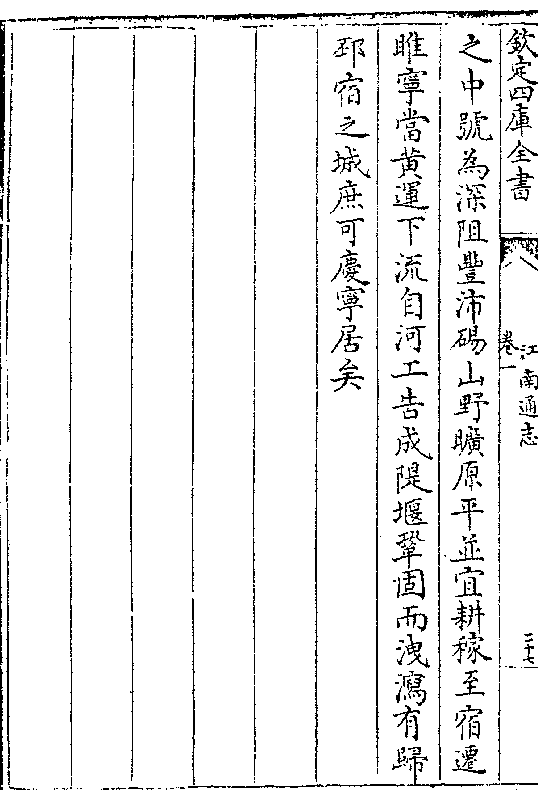 欽定四庫全書
江南通志
卷一
二十七
之中號為深阻豐沛碭山野曠原平並宜耕稼至宿遷
睢寧當黄運下流自河工告成隄堰鞏固而洩瀉有歸
邳宿之城庶可慶寧居矣